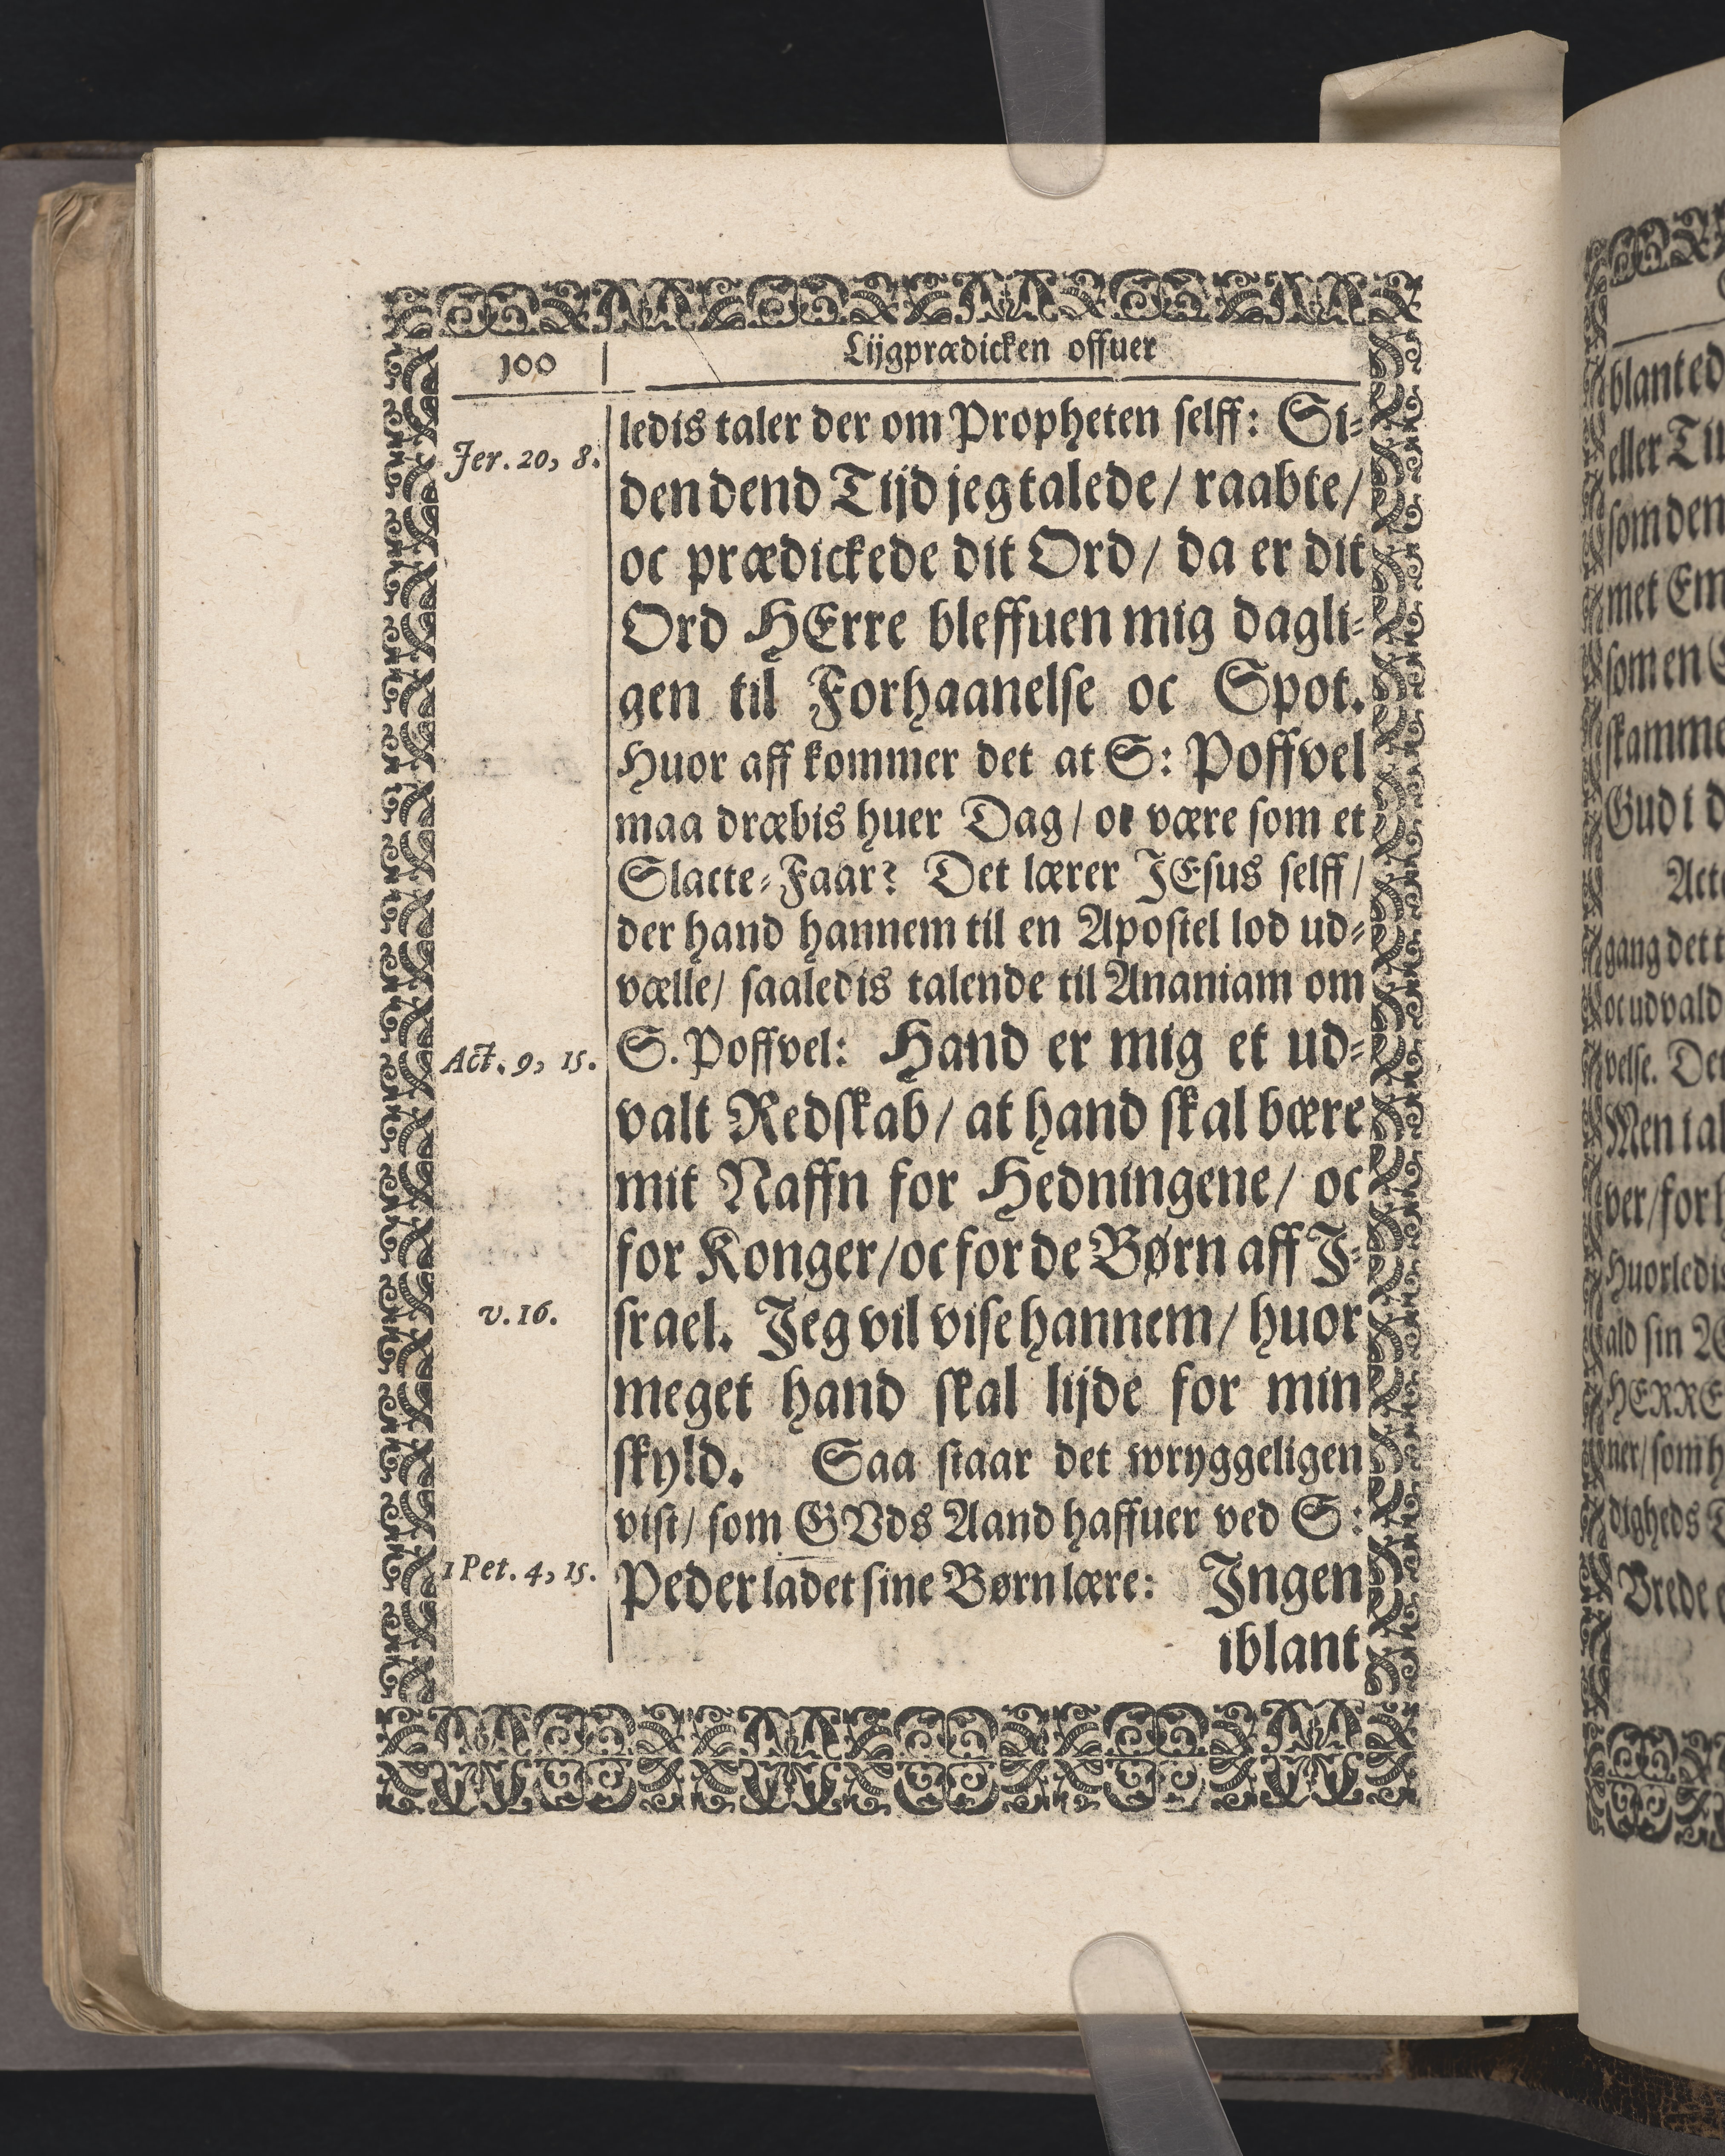 100
Lijgprædicken offuer
Jer. 20, 8.
ledis taler der om Propheten selff: Si-
den dend Tijd jeg talede / raabte /
oc prædickede dit Ord / da er dit
Ord HErre bleffuen mig dagli-
gen til Forhaanelse oc Spot.
Huor aff kommer det at S: Poffvel
maa dræbis huer Dag / oc være som et
Slacte-Faar? Det lærer JEsus selff /
der hand hannem til en Apostel lod ud-
vælle / saaledis talende til Ananiam om
Act. 9, 15.
S. Poffvel: Hand er mig et ud-
valt Redskab / at hand skal bære
mit Naffn for Hedningene / oc
for Konger / oc for de Børn aff J-
v. 16.
srael. Jeg vil vise hannem / huor
meget hand skal lijde for min
skyld. Saa staar det wryggeligen
vist / som GVds Aand haffuer ved S:
1 Pet. 4, 15.
Peder ladet sine Børn lære: Jngen
iblant